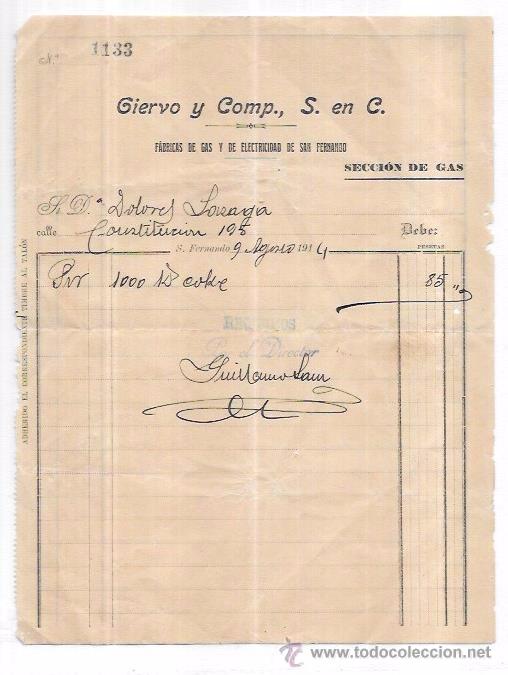 N.º 1133
Giervo y Comp., S. en C.
FÁBRICAS DE GAS Y DE ELECTRICIDAD DE SAN FERNANDO
SECCIÓN DE GAS
S. D.ª Dolores
calle Constitucion 195 Debe:
S. Fernando 9 Agosto 1914 PESETAS
Por 1000 K cokc 85 "
RECIBIMOS
P. el Director
Guillermo
ADHERIDO EL CORRESPONDIENTE TIMBRE AL TALÓN
todocoleccion
www.todocoleccion.net